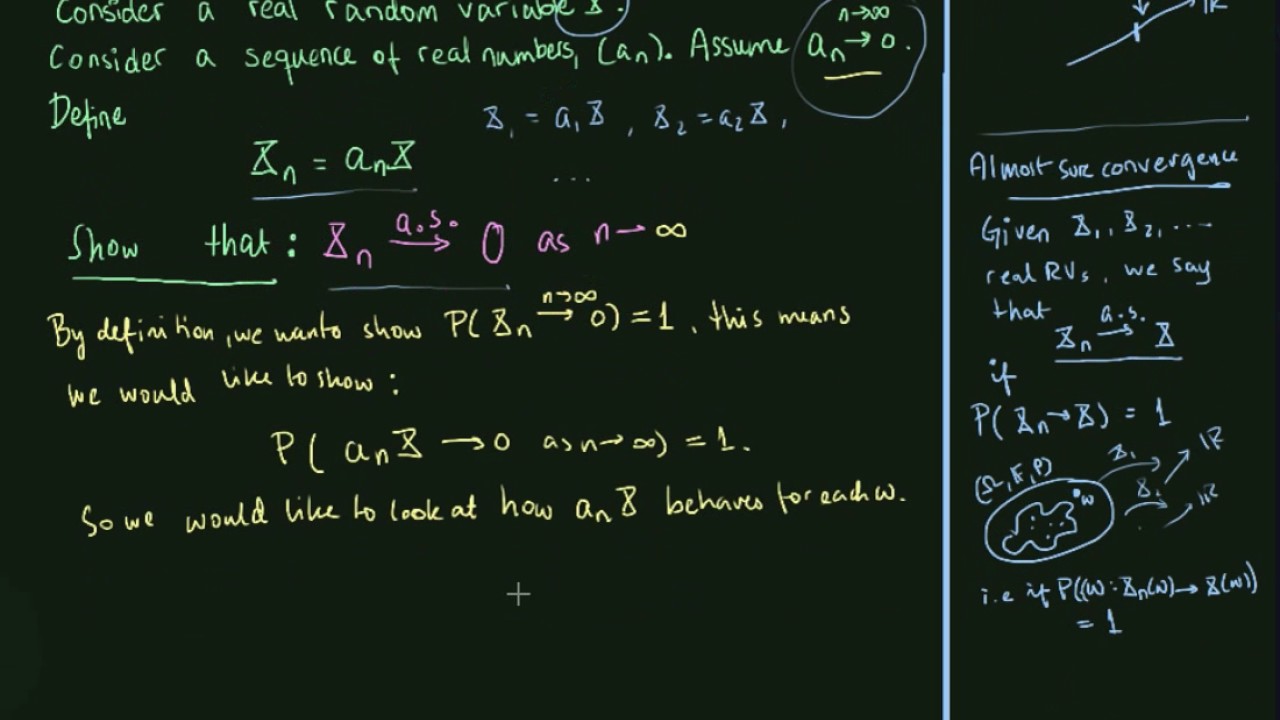 Consider a real random variable X.
Consider a sequence of real numbers, (an). Assume an → 0. n→∞
Define X1 = a1X, X2 = a2X,
Xn = anX ...
Show that: Xn a.s.→ 0 as n→∞
By definition, we wanto show P(Xn n→∞→ 0) = 1, this means
we would like to show:
P(anX → 0 as n→∞) = 1.
So we would like to look at how anX behaves for each w.
IR
Almost sure convergence
Given X1, X2, ...
real RVs, we say
that Xn a.s.→ X
if
P(Xn→X) = 1
(Ω, F, P) w X1 IR
IR
i.e if P((w: Xn(w)→X(w))
= 1